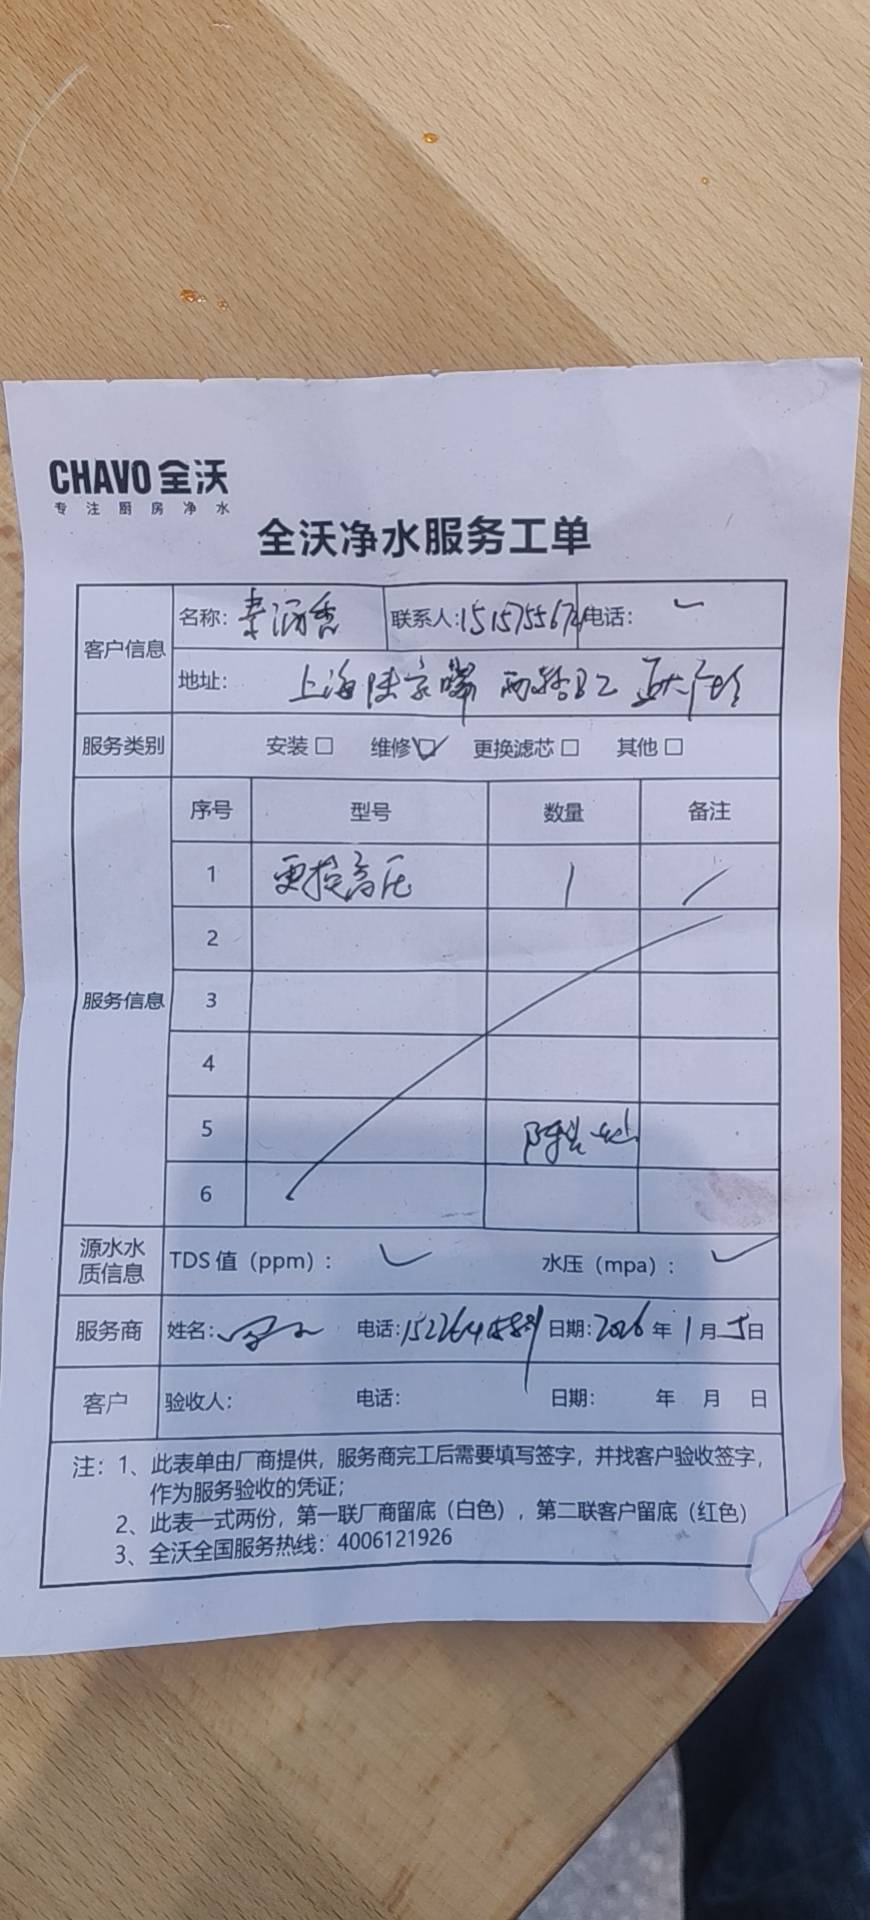 CHAVO 全沃
专注厨房净水
全沃净水服务工单
客户信息 名称: 联系人: 电话:
地址: 上海陆家嘴
服务类别 安装□ 维修☑ 更换滤芯□ 其他□
服务信息
序号 型号 数量 备注
1 更换高压 1 /
2
3
4
5
6
源水水质信息 TDS 值（ppm）: ✓ 水压（mpa）: ✓
服务商 姓名: 电话: 日期: 2026 年 1 月 5 日
客户 验收人: 电话: 日期: 年 月 日
注: 1、此表单由厂商提供，服务商完工后需要填写签字，并找客户验收签字，
作为服务验收的凭证；
2、此表一式两份，第一联厂商留底（白色），第二联客户留底（红色）
3、全沃全国服务热线：4006121926